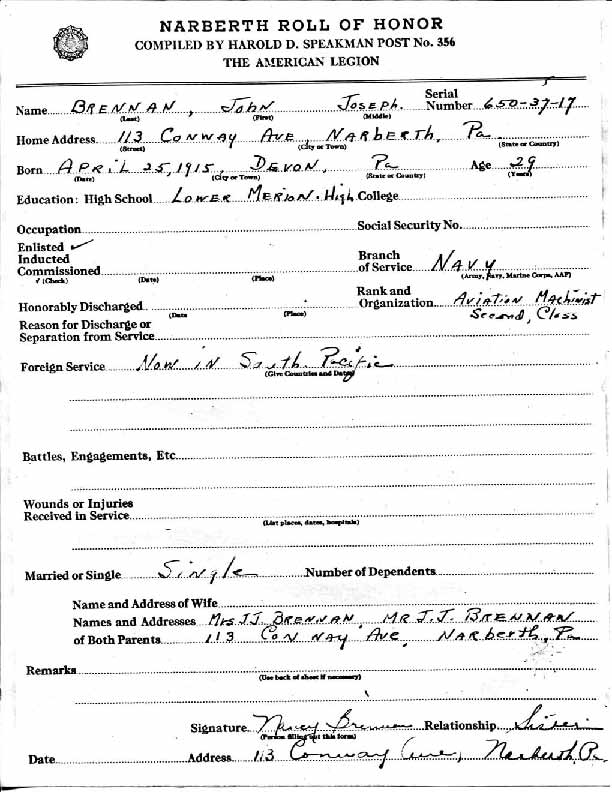 NARBERTH ROLL OF HONOR
COMPILED BY HAROLD D. SPEAKMAN POST No. 356
THE AMERICAN LEGION
Name BRENNAN, JOHN JOSEPH. Serial Number 650-37-17
(Last) (First) (Middle)
Home Address 113 CONWAY AVE, NARBERTH, Pa
(Street) (City or Town) (State or Country)
Born APRIL 25, 1915, DEVON, Pa Age 29
(Date) (City or Town) (State or Country) (Years)
Education: High School LOWER MERION. High College
Occupation Social Security No.
Enlisted ✓
Inducted
Commissioned
✓ (Check) (Date) (Place)
Branch
of Service NAVY
(Army, Navy, Marine Corps, AAF)
Honorably Discharged
(Date (Place)
Rank and
Organization AVIATION MACHINIST
Second, Class
Reason for Discharge or
Separation from Service
Foreign Service NOW IN South Pacific
(Give Countries and Dates)
Battles, Engagements, Etc.
Wounds or Injuries
Received in Service
(List places, dates, hospitals)
Married or Single Single Number of Dependents
Name and Address of Wife
Names and Addresses Mrs JJ BRENNAN, MR J.J. BRENNAN
of Both Parents 113 CONWAY AVE, NARBERTH, Pa
Remarks
(Use back of sheet if necessary)
Signature Nancy Brennan Relationship Sister
(Person filling out this form)
Date Address 113 Conway Ave, Narberth, Pa